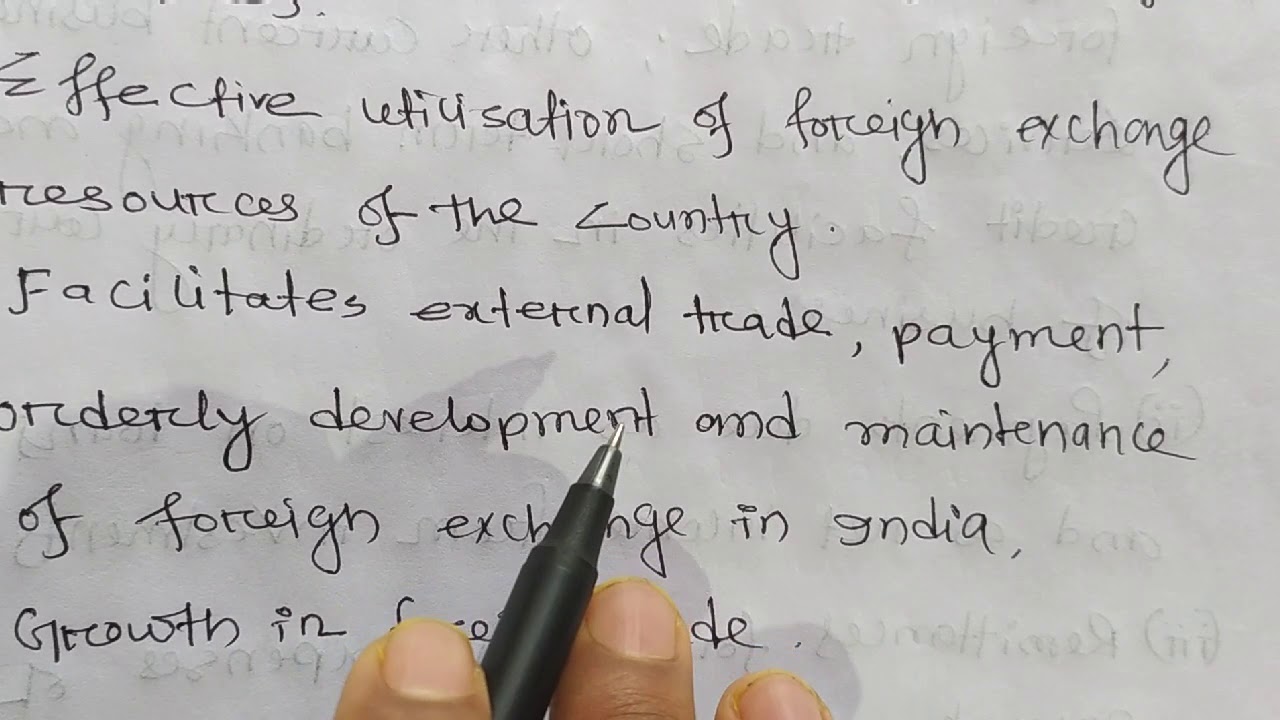 Effective utilisation of foreign exchange
resources of the country.
Facilitates external trade, payment,
orderly development and maintenance
of foreign exchange in India,
Growth in